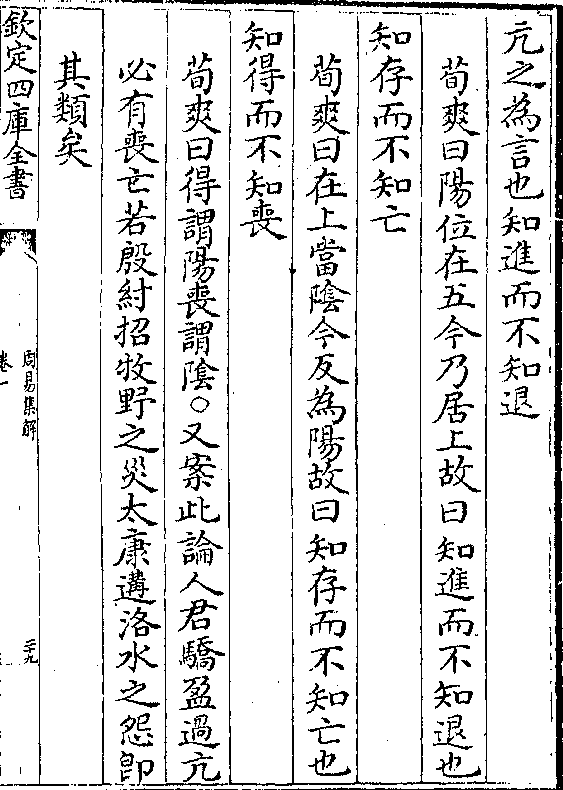 亢之為言也知進而不知退
荀爽曰陽位在五今乃居上故曰知進而不知退也
知存而不知亡
荀爽曰在上當陰今反為陽故曰知存而不知亡也
知得而不知喪
荀爽曰得謂陽喪謂陰○又案此論人君驕盈過亢
必有喪亡若殷紂招牧野之災太康遘洛水之怨即
其類矣
欽定四庫全書
周易集解
卷一
二十九